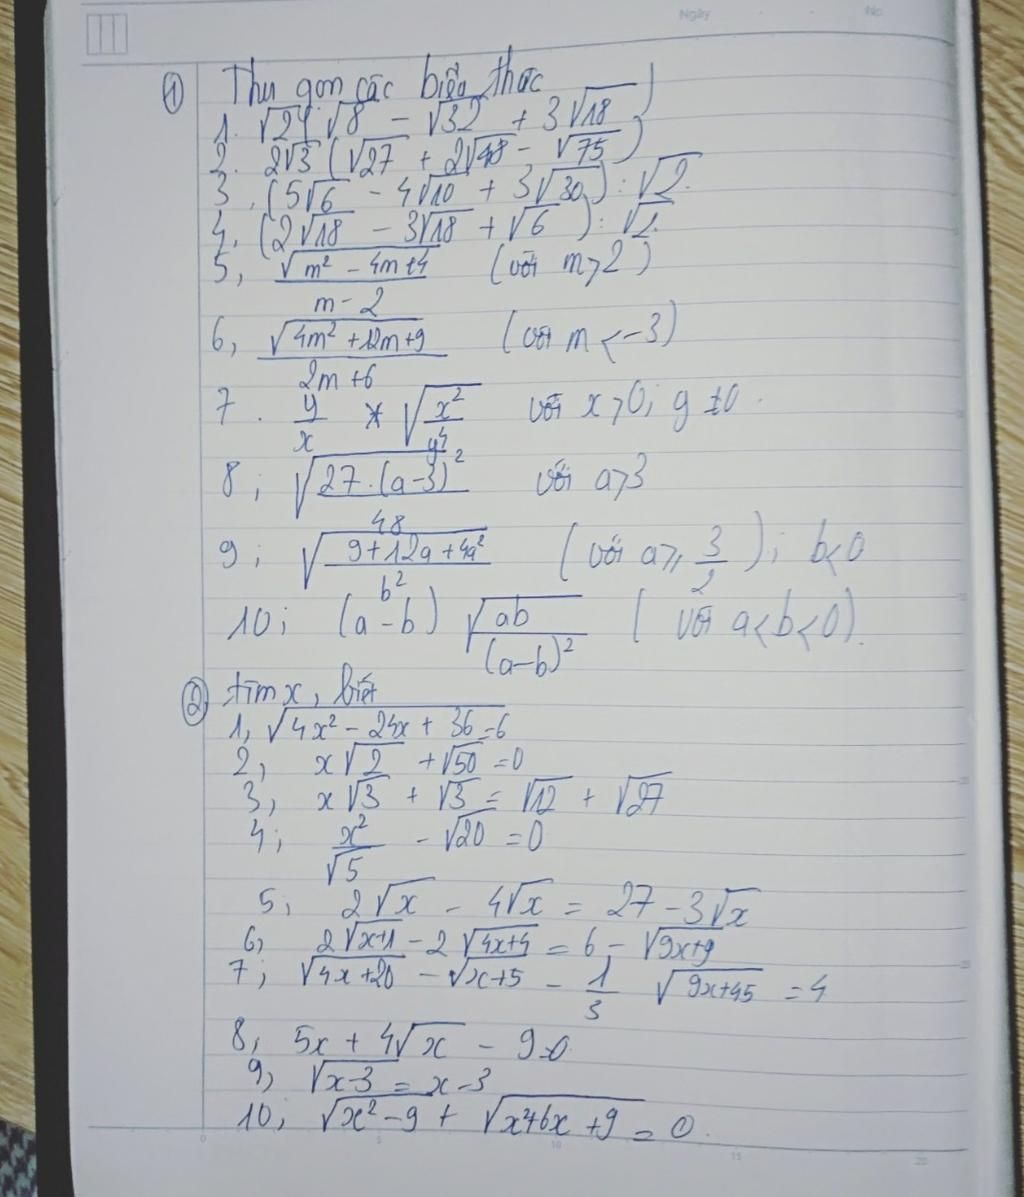 Ngày No
① Thu gọn các biểu thức
1. √24 √8 - √32 + 3√18
2. 2√3 (√27 + 2√48 - √75)
3. (5√6 - 4√10 + 3√30) : √2.
4. (2√18 - 3√18 + √6) : √2.
5, √(m² - 4m + 4) / (m - 2) (với m > 2)
6, √(4m² + 12m + 9) / (2m + 6) (với m < -3)
7. y/x * √(x²/y⁴) với x > 0; y ≠ 0.
8; √(27.(a-3)²/48) với a > 3
9; √((9 + 12a + 4a²)/b²) (với a ≥ 3/2); b < 0
10; (a - b) √(ab/(a-b)²) (với a < b < 0).
② tìm x, biết
1, √(4x² - 24x + 36) = 6
2, x√2 + √50 = 0
3, x√3 + √3 = √12 + √27
4; x²/√5 - √20 = 0
5, 2√x - 4√x = 27 - 3√x
6, 2√(x+1) - 2√(4x+4) = 6 - √(9x+9)
7; √(4x+20) - √(x+5) - 1/3 √(9x+45) = 4
8, 5x + 4√x - 9 = 0
9, √(x-3) = x - 3
10, √(x² - 9) + √(x² + 6x + 9) = 0.
0 5 10 15 20